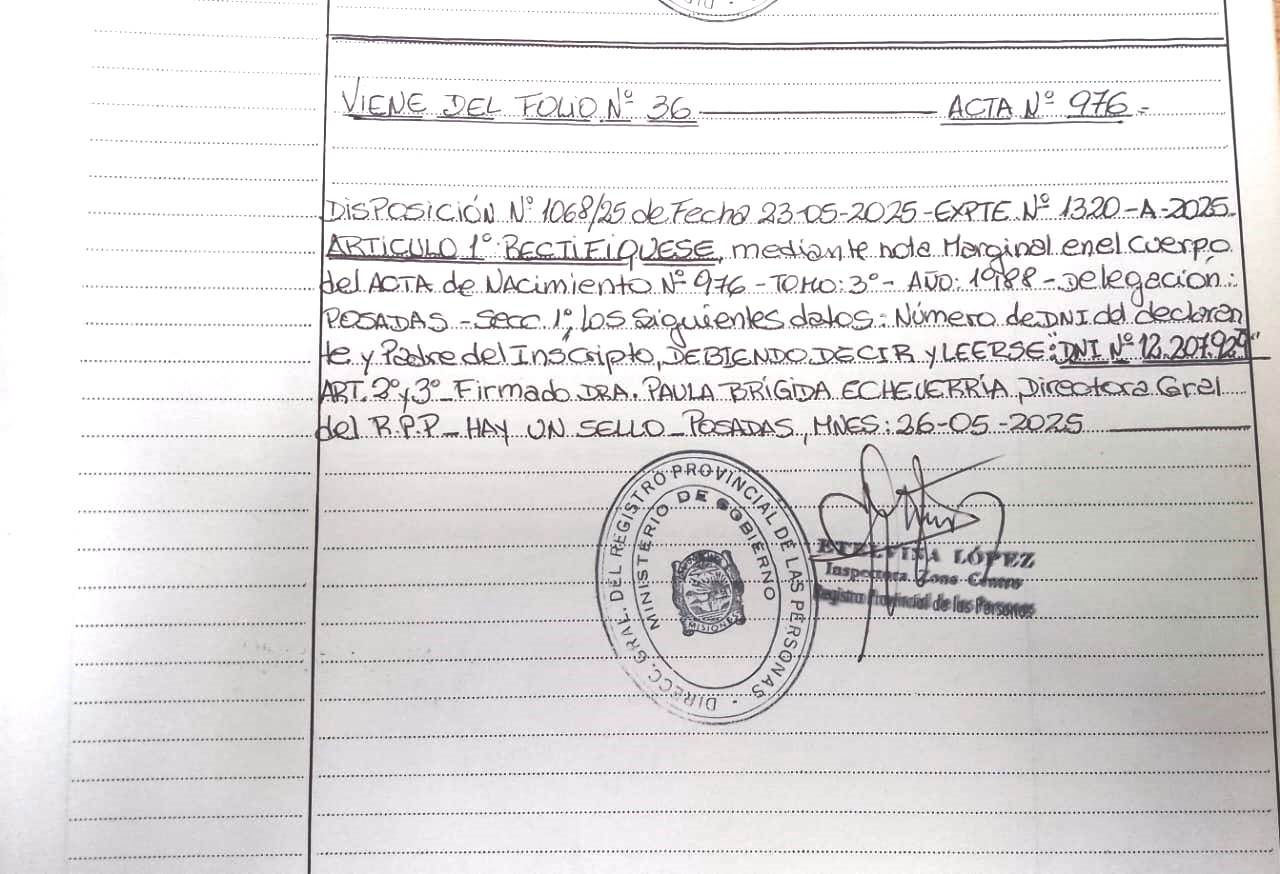 VIENE DEL FOLIO Nº 36 ACTA Nº 976.-
DISPOSICIÓN Nº 1068/25 de Fecha 23-05-2025-EXPTE Nº 1320-A-2025.
ARTICULO 1º: RECTIFIQUESE, mediante nota Marginal en el Cuerpo
del ACTA de NAcimiento Nº 976 - TOMO: 3º - AÑO: 1988 - Delegación:
POSADAS - Secc. 1º, Los Siguientes datos: Número de DNI del declaran
te y Padre del Inscripto, DEBIENDO DECIR y LEERSE: "DNI Nº 12.207.929"
ART. 2º y 3º_ Firmado DRA. PAULA BRÍGIDA ECHEVERRÍA, Directora Gral
del R.P.P_ HAY UN SELLO_ POSADAS, MNES: 26-05-2025
DIRECC. GRAL. DEL REGISTRO PROVINCIAL DE LAS PERSONAS
MINISTERIO DE GOBIERNO
MISIONES
ETELVINA LÓPEZ
Inspectora Zona Centro
Registro Provincial de las Personas